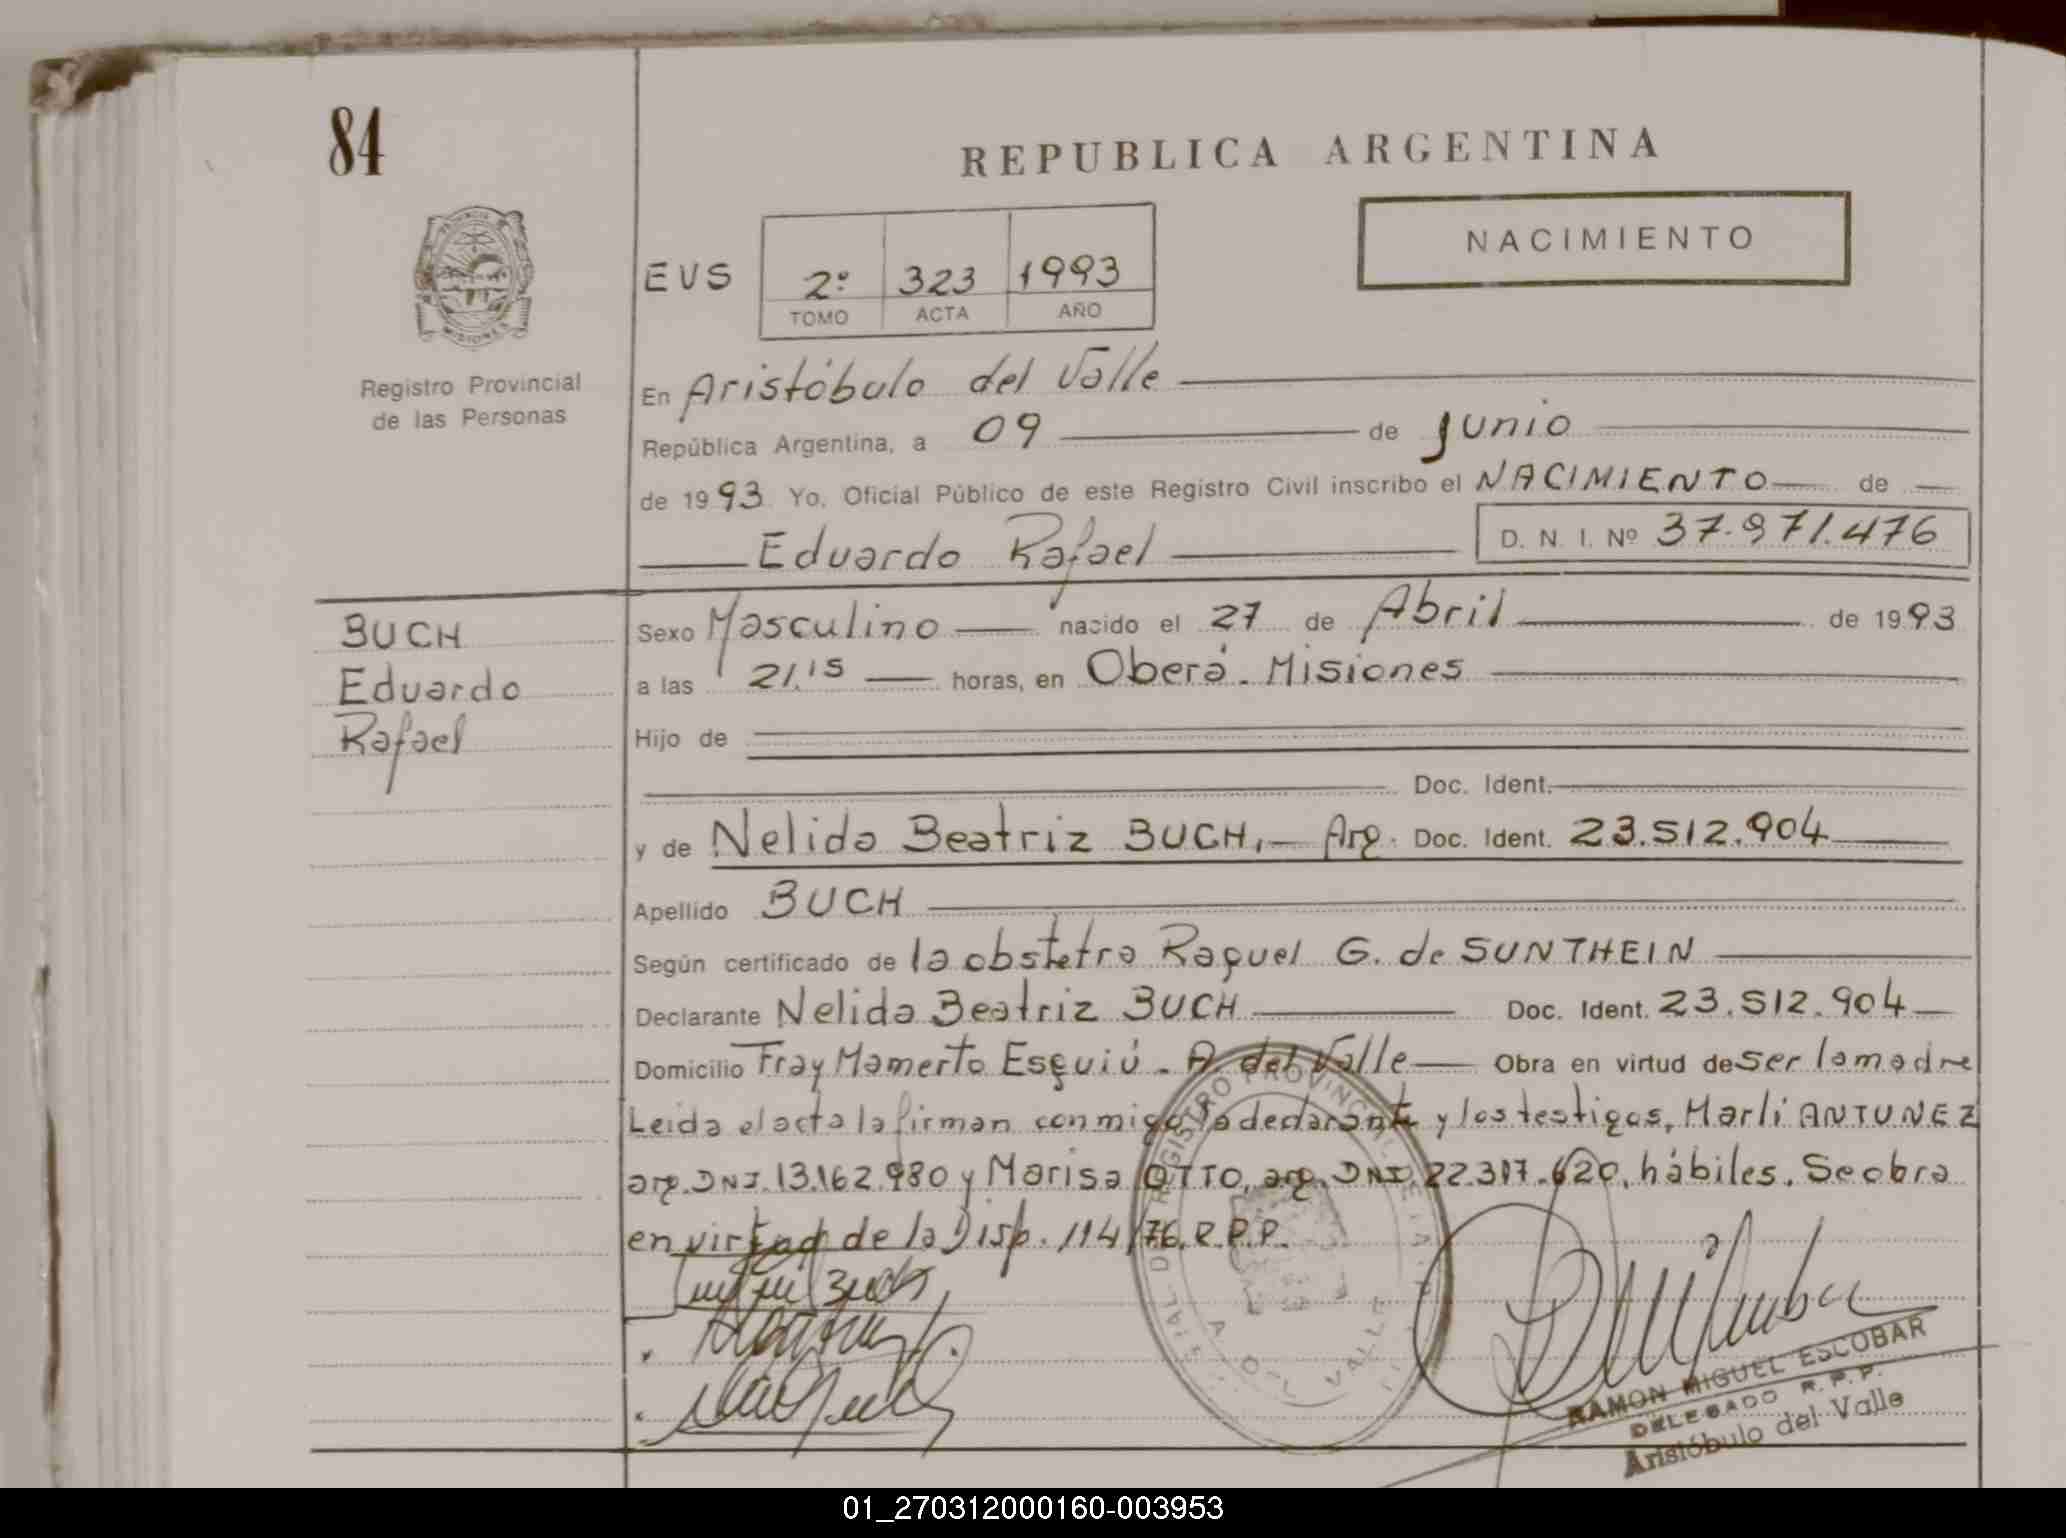 84
REPUBLICA ARGENTINA
NACIMIENTO
EVS 2º 323 1993
TOMO ACTA AÑO
PROVINCIA MISIONES
Registro Provincial
de las Personas
En Aristóbulo del Valle
República Argentina, a 09 de Junio
de 1993 Yo, Oficial Público de este Registro Civil inscribo el NACIMIENTO de
Eduardo Rafael D. N. I. Nº 37.971.476
BUCH
Eduardo
Rafael
Sexo Masculino nacido el 27 de Abril de 1993
a las 21.15 horas, en Oberá. Misiones
Hijo de
Doc. Ident.
y de Nelida Beatriz BUCH, Arg. Doc. Ident. 23.512.904
Apellido BUCH
Según certificado de la obstetra Raquel G. de SUNTHEIN
Declarante Nelida Beatriz BUCH Doc. Ident. 23.512.904
Domicilio Fray Mamerto Esquiú - A. del Valle Obra en virtud de ser la madre
Leida el acta la firman conmigo la declarante y los testigos, Marli ANTUNEZ
arg. DNI. 13.162.980 y Marisa OTTO, arg. DNI. 22.317.620, hábiles. Se obra
en virtud de la Disp. 114/76. R.P.P.
REGISTRO PROVINCIAL DE
A. DEL VALLE
RAMON MIGUEL ESCOBAR
DELEGADO R. P. P.
Aristóbulo del Valle
01_270312000160-003953